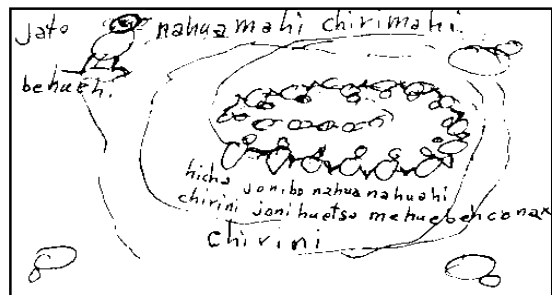 jato nahuamahi chirimahi.
behuehi.
hicha jonibo nahuanahuahi
chirini jonihuetsa mehuebehconax
chirini